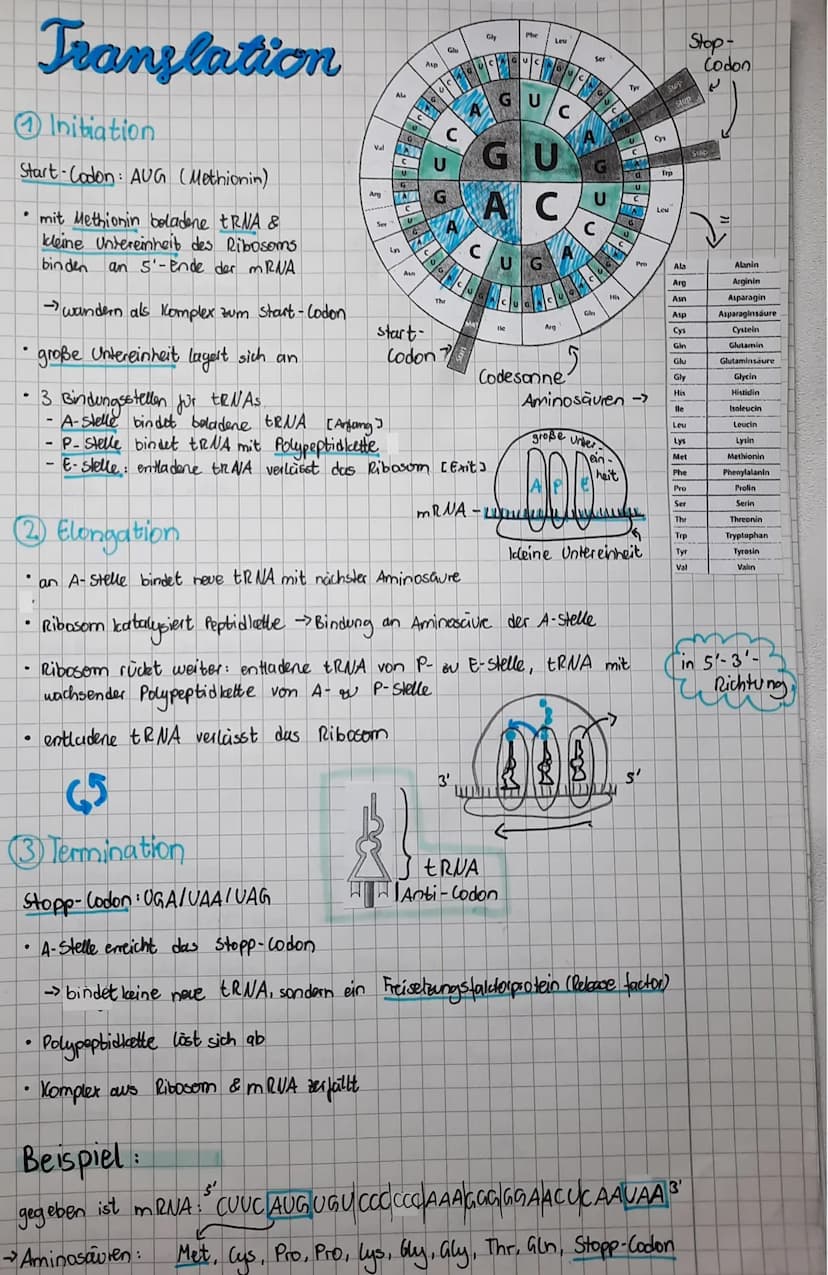 Translation
① Initiation
Start-Codon: AUG (Methionin)
• mit Methionin beladene tRNA &
kleine Untereinheit des Ribosoms
binden an 5'-Ende der mRNA
→ wandern als Komplex zum Start-Codon
• große Untereinheit lagert sich an
• 3 Bindungsstellen für tRNAs
- A-Stelle bindet beladene tRNA [Anfang]
- P-Stelle bindet tRNA mit Polypeptidkette
- E-Stelle: entladene tRNA verlässt das Ribosom [Exit]
Stop-
Codon
Gly Phe Leu Ser Tyr Stop Stop Cys Stop Trp Leu Pro His Gln Arg Ile Met Start Thr Asn Lys Ser Arg Val Ala Asp Glu
G U A C
Start-
Codon
Codesonne
Aminosäuren →
=
Ala Alanin
Arg Arginin
Asn Asparagin
Asp Asparaginsäure
Cys Cystein
Gln Glutamin
Glu Glutaminsäure
Gly Glycin
His Histidin
Ile Isoleucin
Leu Leucin
Lys Lysin
Met Methionin
Phe Phenylalanin
Pro Prolin
Ser Serin
Thr Threonin
Trp Tryptophan
Tyr Tyrosin
Val Valin
große Unter-
ein-
heit
A P E
mRNA -
kleine Untereinheit
② Elongation
• an A-Stelle bindet neue tRNA mit nächster Aminosäure
• Ribosom katalysiert Peptidkette → Bindung an Aminosäure der A-Stelle
• Ribosom rückt weiter: entladene tRNA von P- zu E-Stelle, tRNA mit
wachsender Polypeptidkette von A- zu P-Stelle
• entladene tRNA verlässt das Ribosom
in 5'-3'-
Richtung
3' 5'
tRNA
Anti-Codon
③ Termination
Stopp-Codon: UGA/UAA/UAG
• A-Stelle erreicht das Stopp-Codon
→ bindet keine neue tRNA, sondern ein Freisetzungsfaktorprotein (Release factor)
• Polypeptidkette löst sich ab
• Komplex aus Ribosom & mRNA zerfällt
Beispiel:
gegeben ist mRNA: 5' CUUC AUG|UGU|CCC|CCC|AAA|GGG|GGA|ACU|CAA|UAA 3'
→ Aminosäuren: Met, Cys, Pro, Pro, Lys, Gly, Gly, Thr, Gln, Stopp-Codon